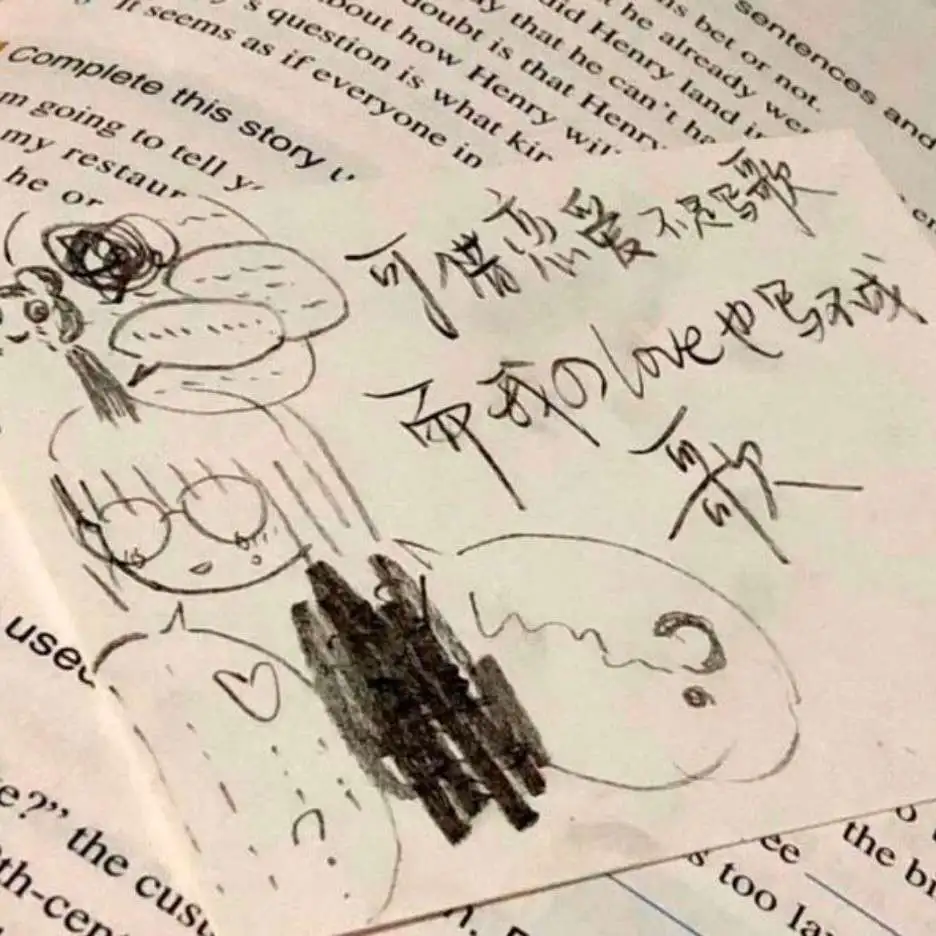 sentences and
bet or not.
he already wer
did Henry land i
that he can't ha
doubt is that Henry
bout how Henry wil
's question is what kir
It seems as if everyone in
Complete this story u
m going to tell y
my restaur
he or
可惜恋爱不是写歌
而我のlove也写不成
歌
used
e?” the cus
th-cen
ee
the bi
s too la